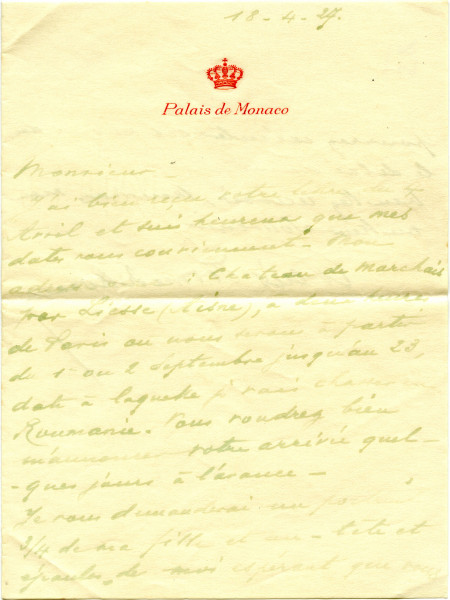 18-4-27.
Palais de Monaco
Monsieur -
J'ai bien reçu votre lettre du
Avril et suis heureux que mes
dates vous conviennent. Mon
adresse : Chateau de Marchais
par Liesse (Aisne), à deux heures
de Paris où nous serons à partir
de 1 ou 2 Septembre jusqu'au 23,
date à laquelle je vais chasser en
Roumanie. Vous voudrez bien
m'annoncer votre arrivée quel-
-ques jours à l'avance -
Je vous demanderai un
3/4 de ma fille et un - tete et
épaules, de moi espérant que vous